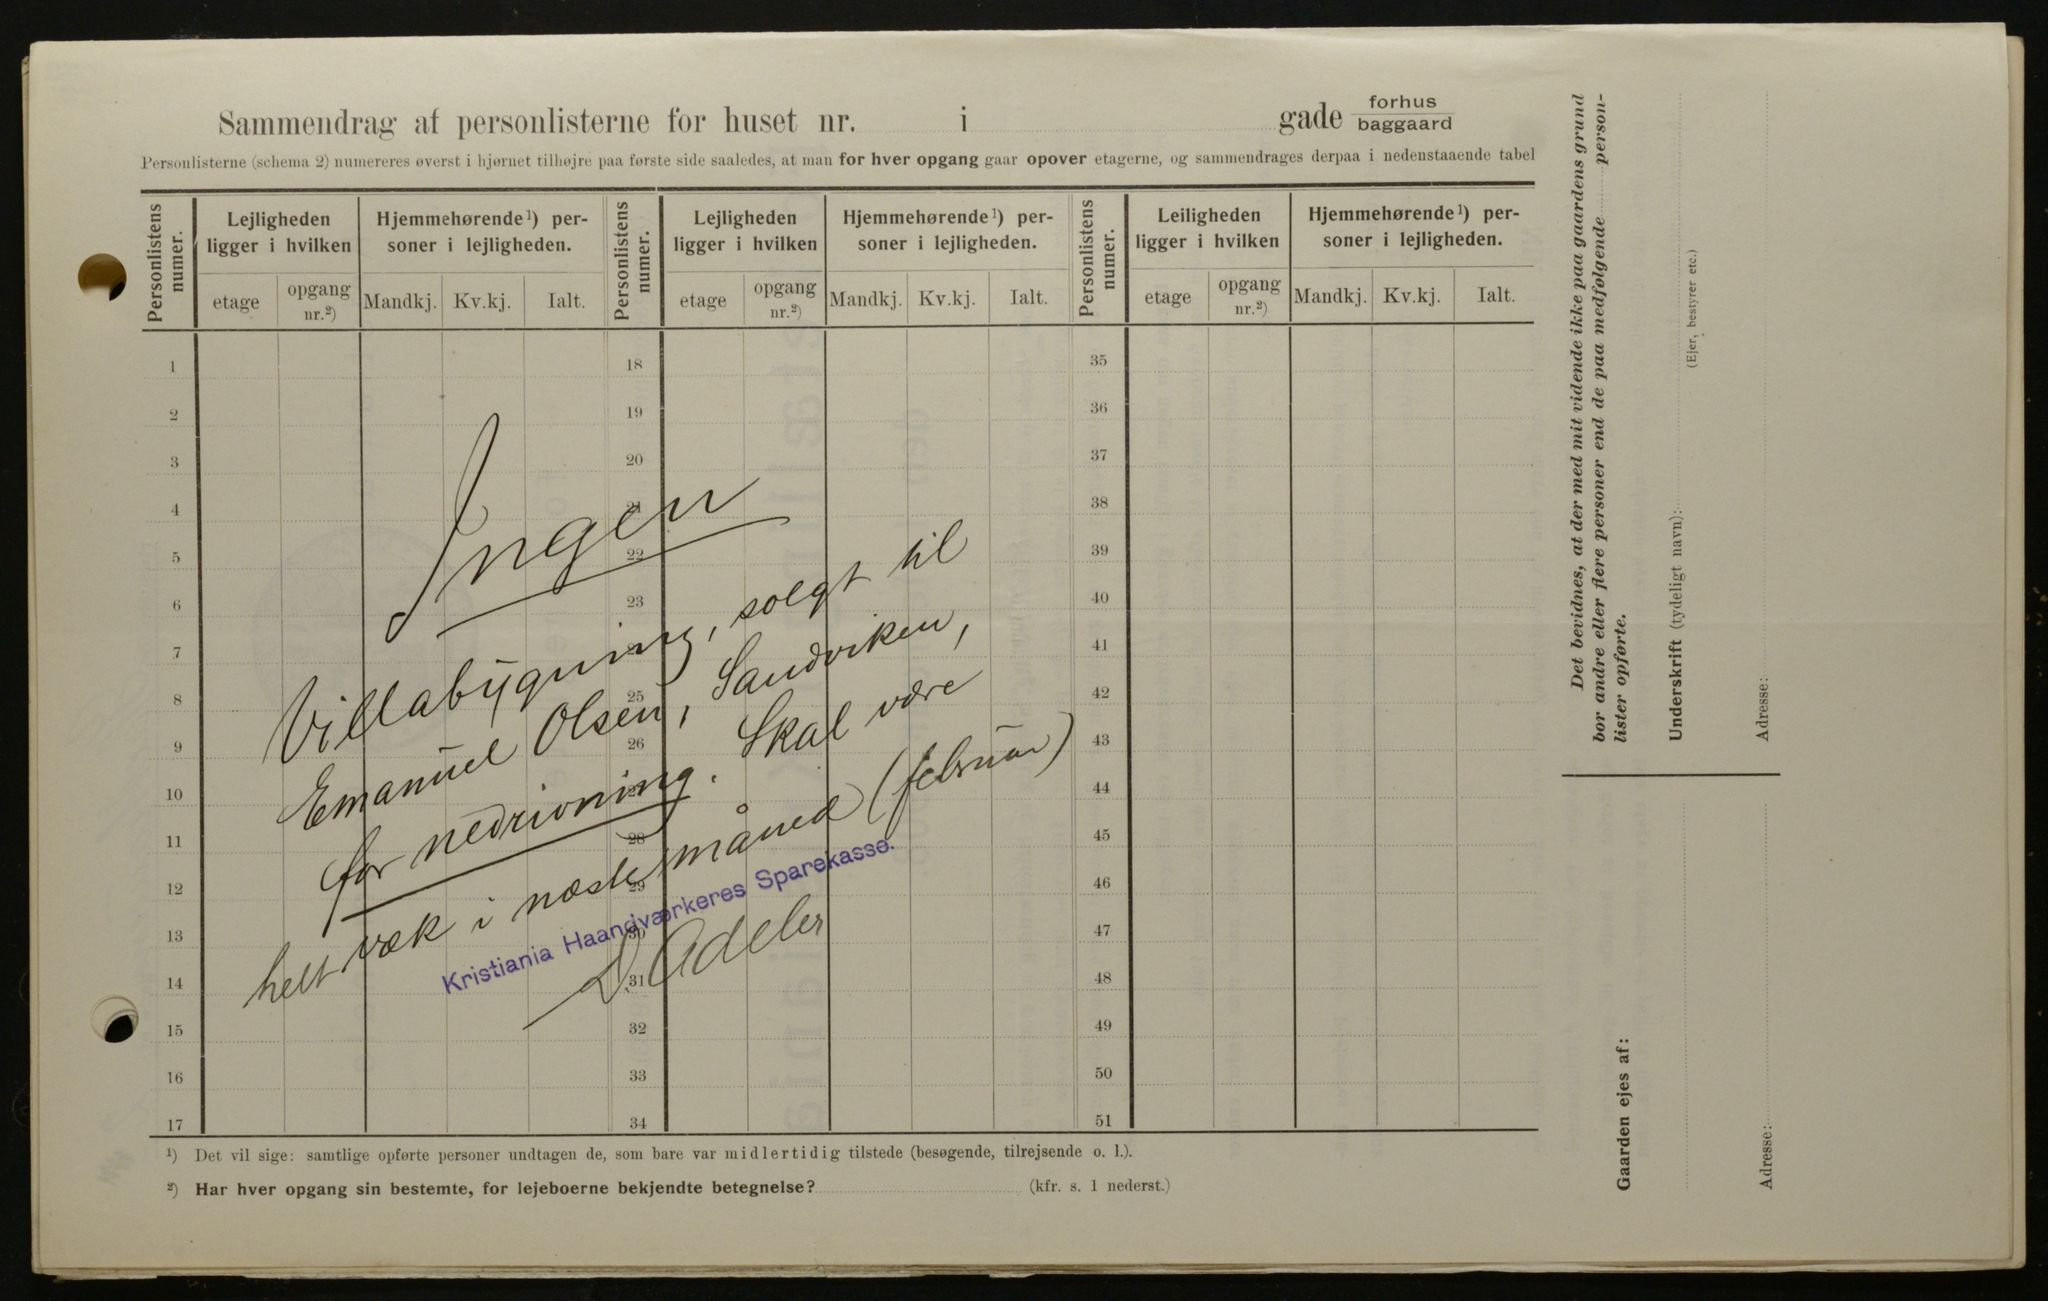 Sammendrag af personlisterne for huset nr. i gade forhus
baggaard
Personlisterne (schema 2) numereres øverst i hjørnet tilhøjre paa første side saaledes, at man for hver opgang gaar opover etagerne, og sammendrages derpaa i nedenstaaende tabel
Personlistens numer.
Lejligheden ligger i hvilken
Hjemmehørende¹) personer i lejligheden.
Personlistens numer.
Lejligheden ligger i hvilken
Hjemmehørende¹) personer i lejligheden.
Personlistens numer.
Leiligheden ligger i hvilken
Hjemmehørende¹) personer i lejligheden.
etage opgang nr.²) Mandkj. Kv.kj. Ialt. etage opgang nr.²) Mandkj. Kv.kj. Ialt. etage opgang nr.²) Mandkj. Kv.kj. Ialt.
1 18 35
2 19 36
3 20 37
4 21 38
5 22 39
6 23 40
7 41
8 25 42
9 26 43
10 27 44
11 28 45
12 29 46
13 30 47
14 31 48
15 32 49
16 33 50
17 34 51
Ingen
Villabygning, solgt til
Emanuel Olsen, Sandviken,
for nedrivning. Skal være
helt væk i næste måned (februar)
Kristiania Haandværkeres Sparekasse.
D Adeler
¹) Det vil sige: samtlige opførte personer undtagen de, som bare var midlertidig tilstede (besøgende, tilrejsende o. l.).
²) Har hver opgang sin bestemte, for lejeboerne bekjendte betegnelse? (kfr. s. 1 nederst.)
Det bevidnes, at der med mit vidende ikke paa gaardens grund
bor andre eller flere personer end de paa medfølgende person-
lister opførte.
Underskrift (tydeligt navn):
(Ejer, bestyrer etc.)
Adresse:
Gaarden ejes af:
Adresse: